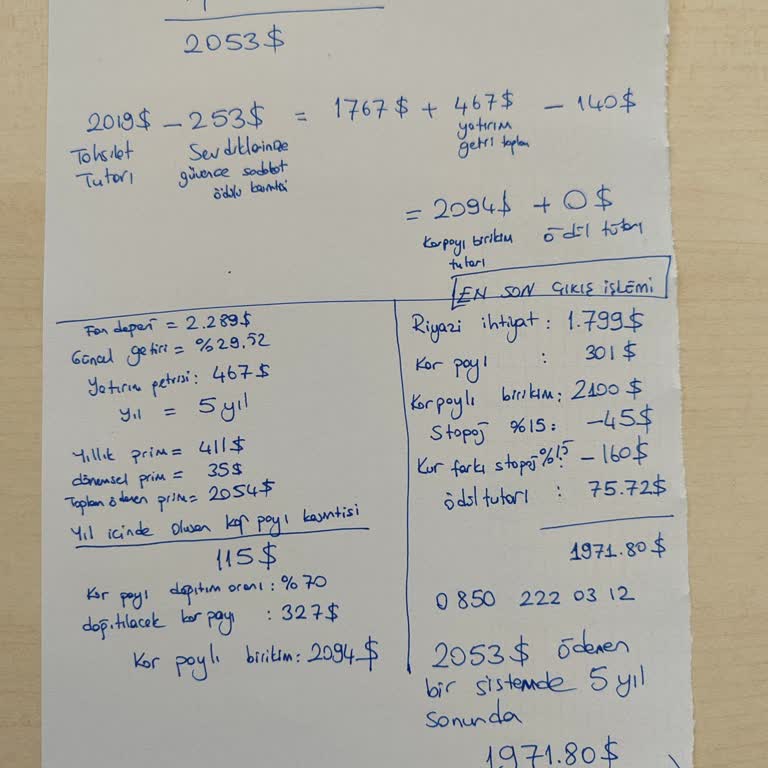 2053$
2019$ - 253$ = 1767$ + 467$ - 140$
Tahsilat Tutarı
Sevdiklerinize güvence saadet ödülü kesintisi
yatırım getiri toplam
= 2094$ + 0$
Kar payı birikim tutarı
ödül tutarı
EN SON ÇIKIŞ İŞLEMİ
Fon değeri = 2.289$
Güncel getiri = %29.52
Yatırım getirisi: 467$
Yıl = 5 yıl
Yıllık prim = 411$
dönemsel prim = 35$
Toplam ödenen prim = 2054$
Yıl içinde oluşan kar payı kesintisi
115$
Kar payı dağıtım oranı : %70
dağıtılacak kar payı : 327$
Kar paylı birikim: 2094$
Riyazi ihtiyat : 1.799$
Kar payı : 301$
Karpaylı birikim: 2100$
Stopaj %15: -45$
Kur farkı stopaj %15: -160$
ödül tutarı : 75.72$
1971.80$
0 850 222 03 12
2053$ ödenen
bir sistemde 5 yıl
sonunda
1971.80$